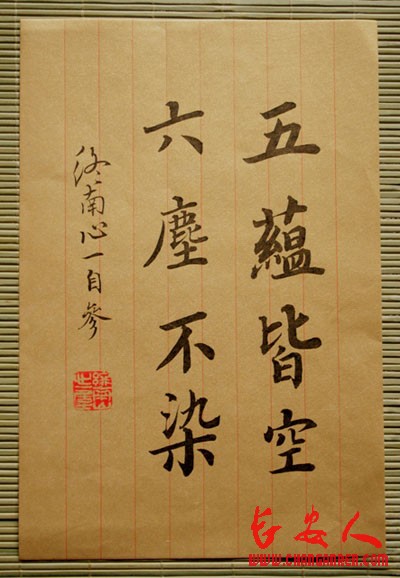 五蘊皆空
六塵不染
終南心一自參
长安人
WWW.CHANGANREN.COM